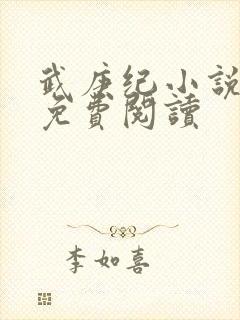 武庚纪小說
免費閱讀
李如喜